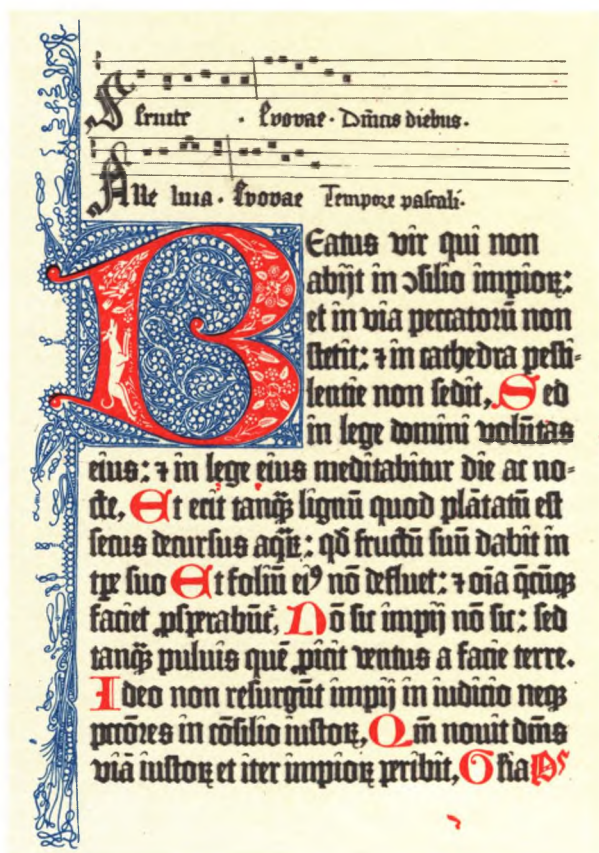 Seruite . Evovae . Dn̄icis diebus .
Alle luia . Evovae Tempore paschali .
BEatus vir qui non
abijt in ꝯsilio impioꝝ :
et in via peccatorū non
stetit : ⁊ in cathedra pesti=
lentie non sedit, Sed
in lege domini volūtas
eius : ⁊ in lege eius meditabitur die ac no=
cte, Et erit tanqꝫ lignū quod plātatū est
secus decursus aqꝝ : qd̄ fructū suū dabit in
tpe suo Et foliū eiꝰ nō defluet : ⁊ oīa q̄cūqꝫ
faciet ꝓsperabūt̄, Nō sic impij nō sic : sed
tanqꝫ puluis quē ꝓicit ventus a facie terre .
Ideo non resurgūt impij in iudicio neqꝫ
peccōres in cōsilio iustoꝝ, Qm̄ nouit dn̄s
viā iustoꝝ et iter impioꝝ peribit, Glia Ps